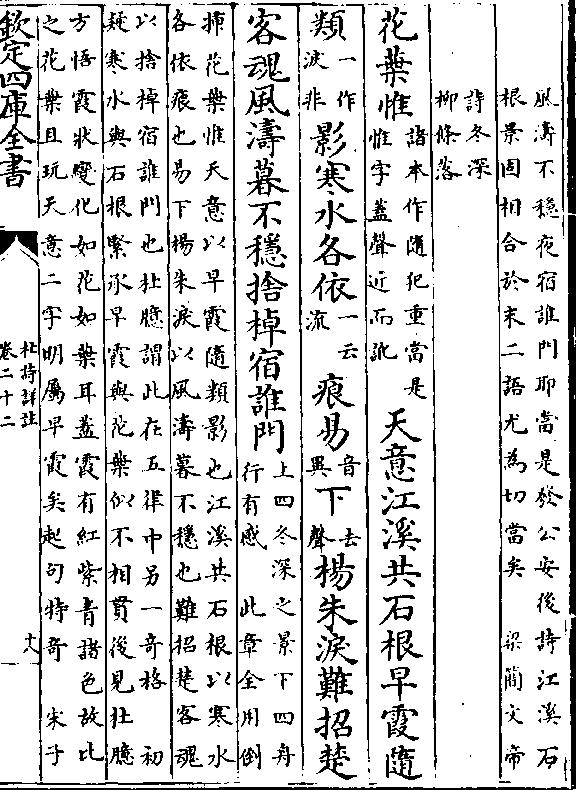 風濤不穩夜宿誰門耶當是發公安後詩江溪石
根景固相合於末二語尤為切當矣　梁簡文帝
詩冬深
柳條落
花葉惟諸本作隨犯重當是惟字蓋聲近而訛天意江溪共石根早霞隨
類一作淚非影寒水各依一云流痕易音異下去聲楊朱淚難招楚
客魂風濤暮不穩捨棹宿誰門上四冬深之景下四舟行有感　此章全用倒
插花葉惟天意以早霞隨類影也江溪共石根以寒水
各依痕也易下楊朱淚以風濤暮不穩也難招楚客魂
以捨棹宿誰門也杜臆謂此在五律中另一奇格　初
疑寒水與石根緊承早霞與花葉似不相貫後見杜臆
方悟霞狀變化如花如葉耳蓋霞有紅紫青諸色故比
之花葉且玩天意二字明屬早霞矣起句特奇　宋子
欽定四庫全書
杜詩詳註
卷二十二
十八